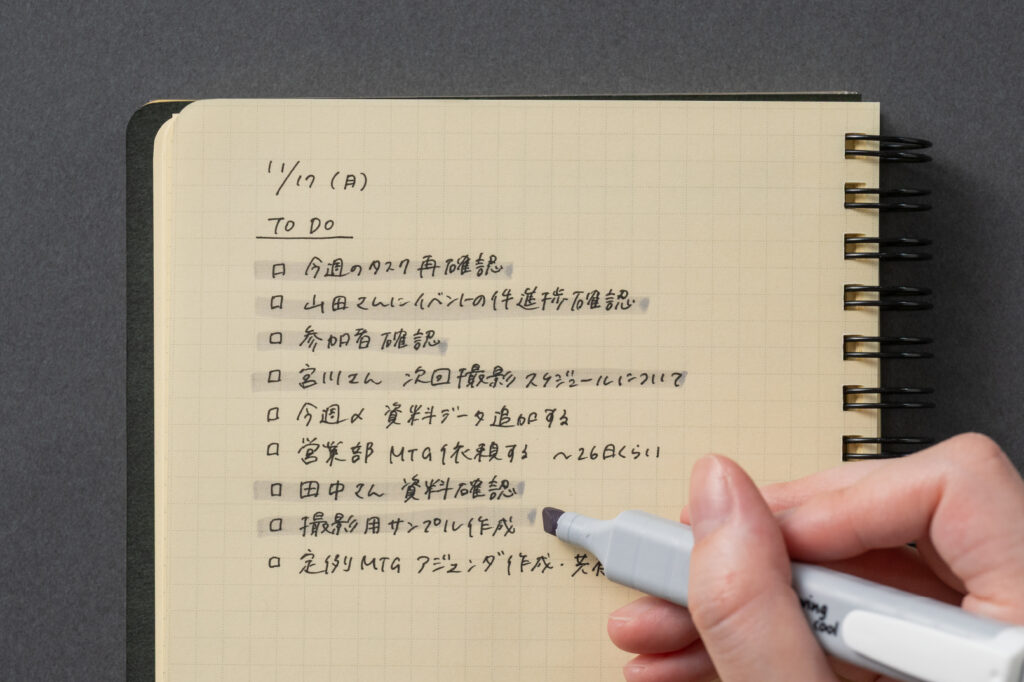 11/17 (月)
TO DO
□ 今週のタスク再確認
□ 山田さんにイベントの件進捗確認
□ 参加者確認
□ 宮川さん 次回撮影スケジュールについて
□ 今週〆 資料データ追加する
□ 営業部 MTG依頼する 〜26日くらい
□ 田中さん 資料確認
□ 撮影用サンプル作成
□ 定例MTG アジェンダ作成・共
cool